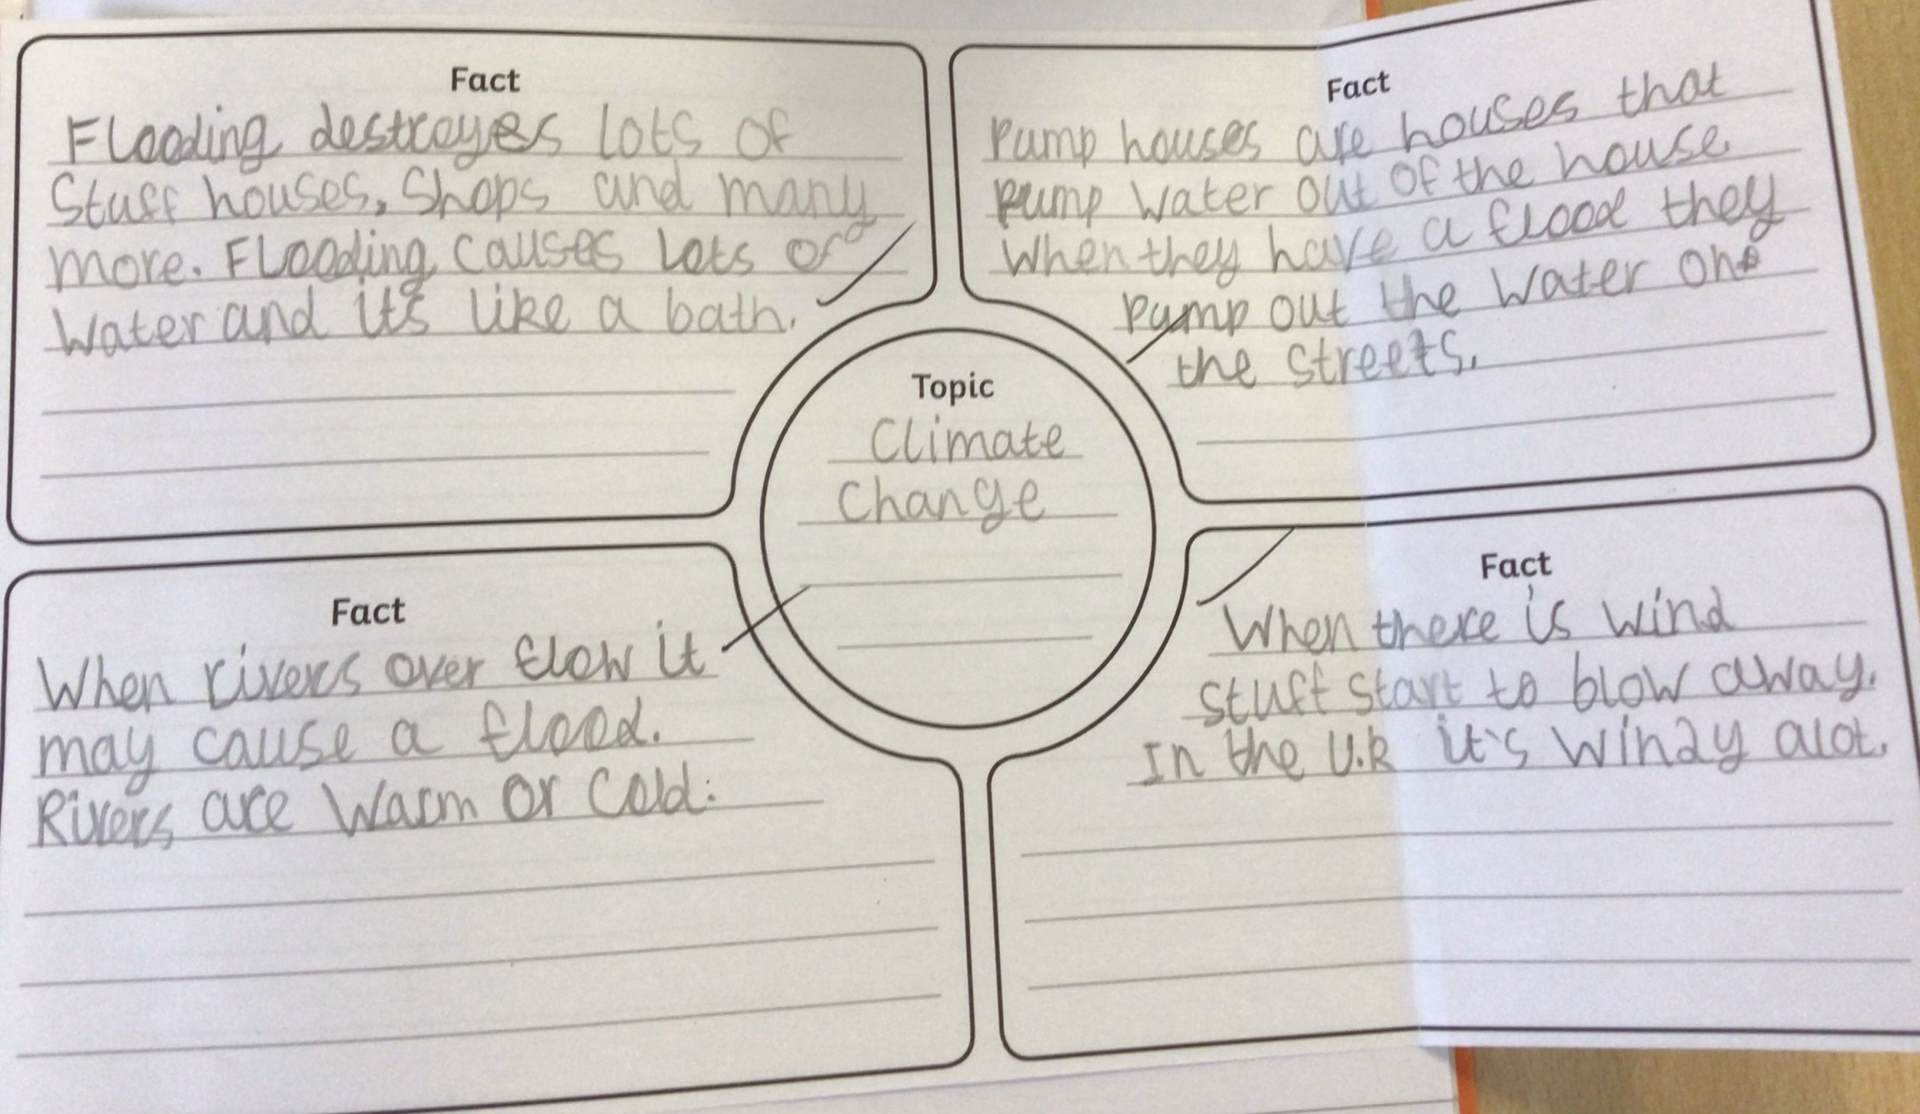 Fact
Flooding destroyes lots of
Stuff houses, Shops and many
more. Flooding causes lots of
Water and it's like a bath.
Fact
Pump houses are houses that
pump water out of the house
When they have a flood they
pump out the water on
the streets.
Topic
Climate
Change
Fact
When rivers over flow it
may cause a flood.
Rivers are warm or cold.
Fact
When there is wind
stuff start to blow away.
In the U.K it's windy alot.